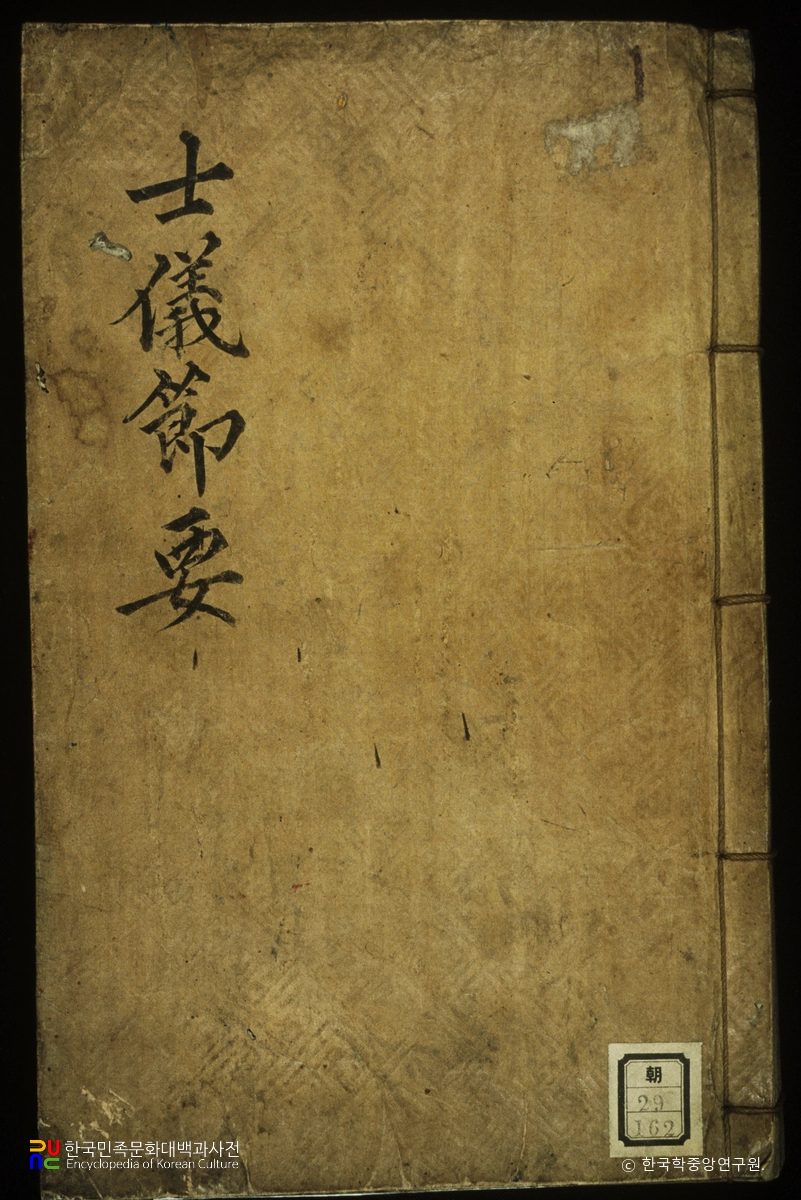 士儀節要
朝
29
162
한국민족문화대백과사전
Encyclopedia of Korean Culture
© 한국학중앙연구원